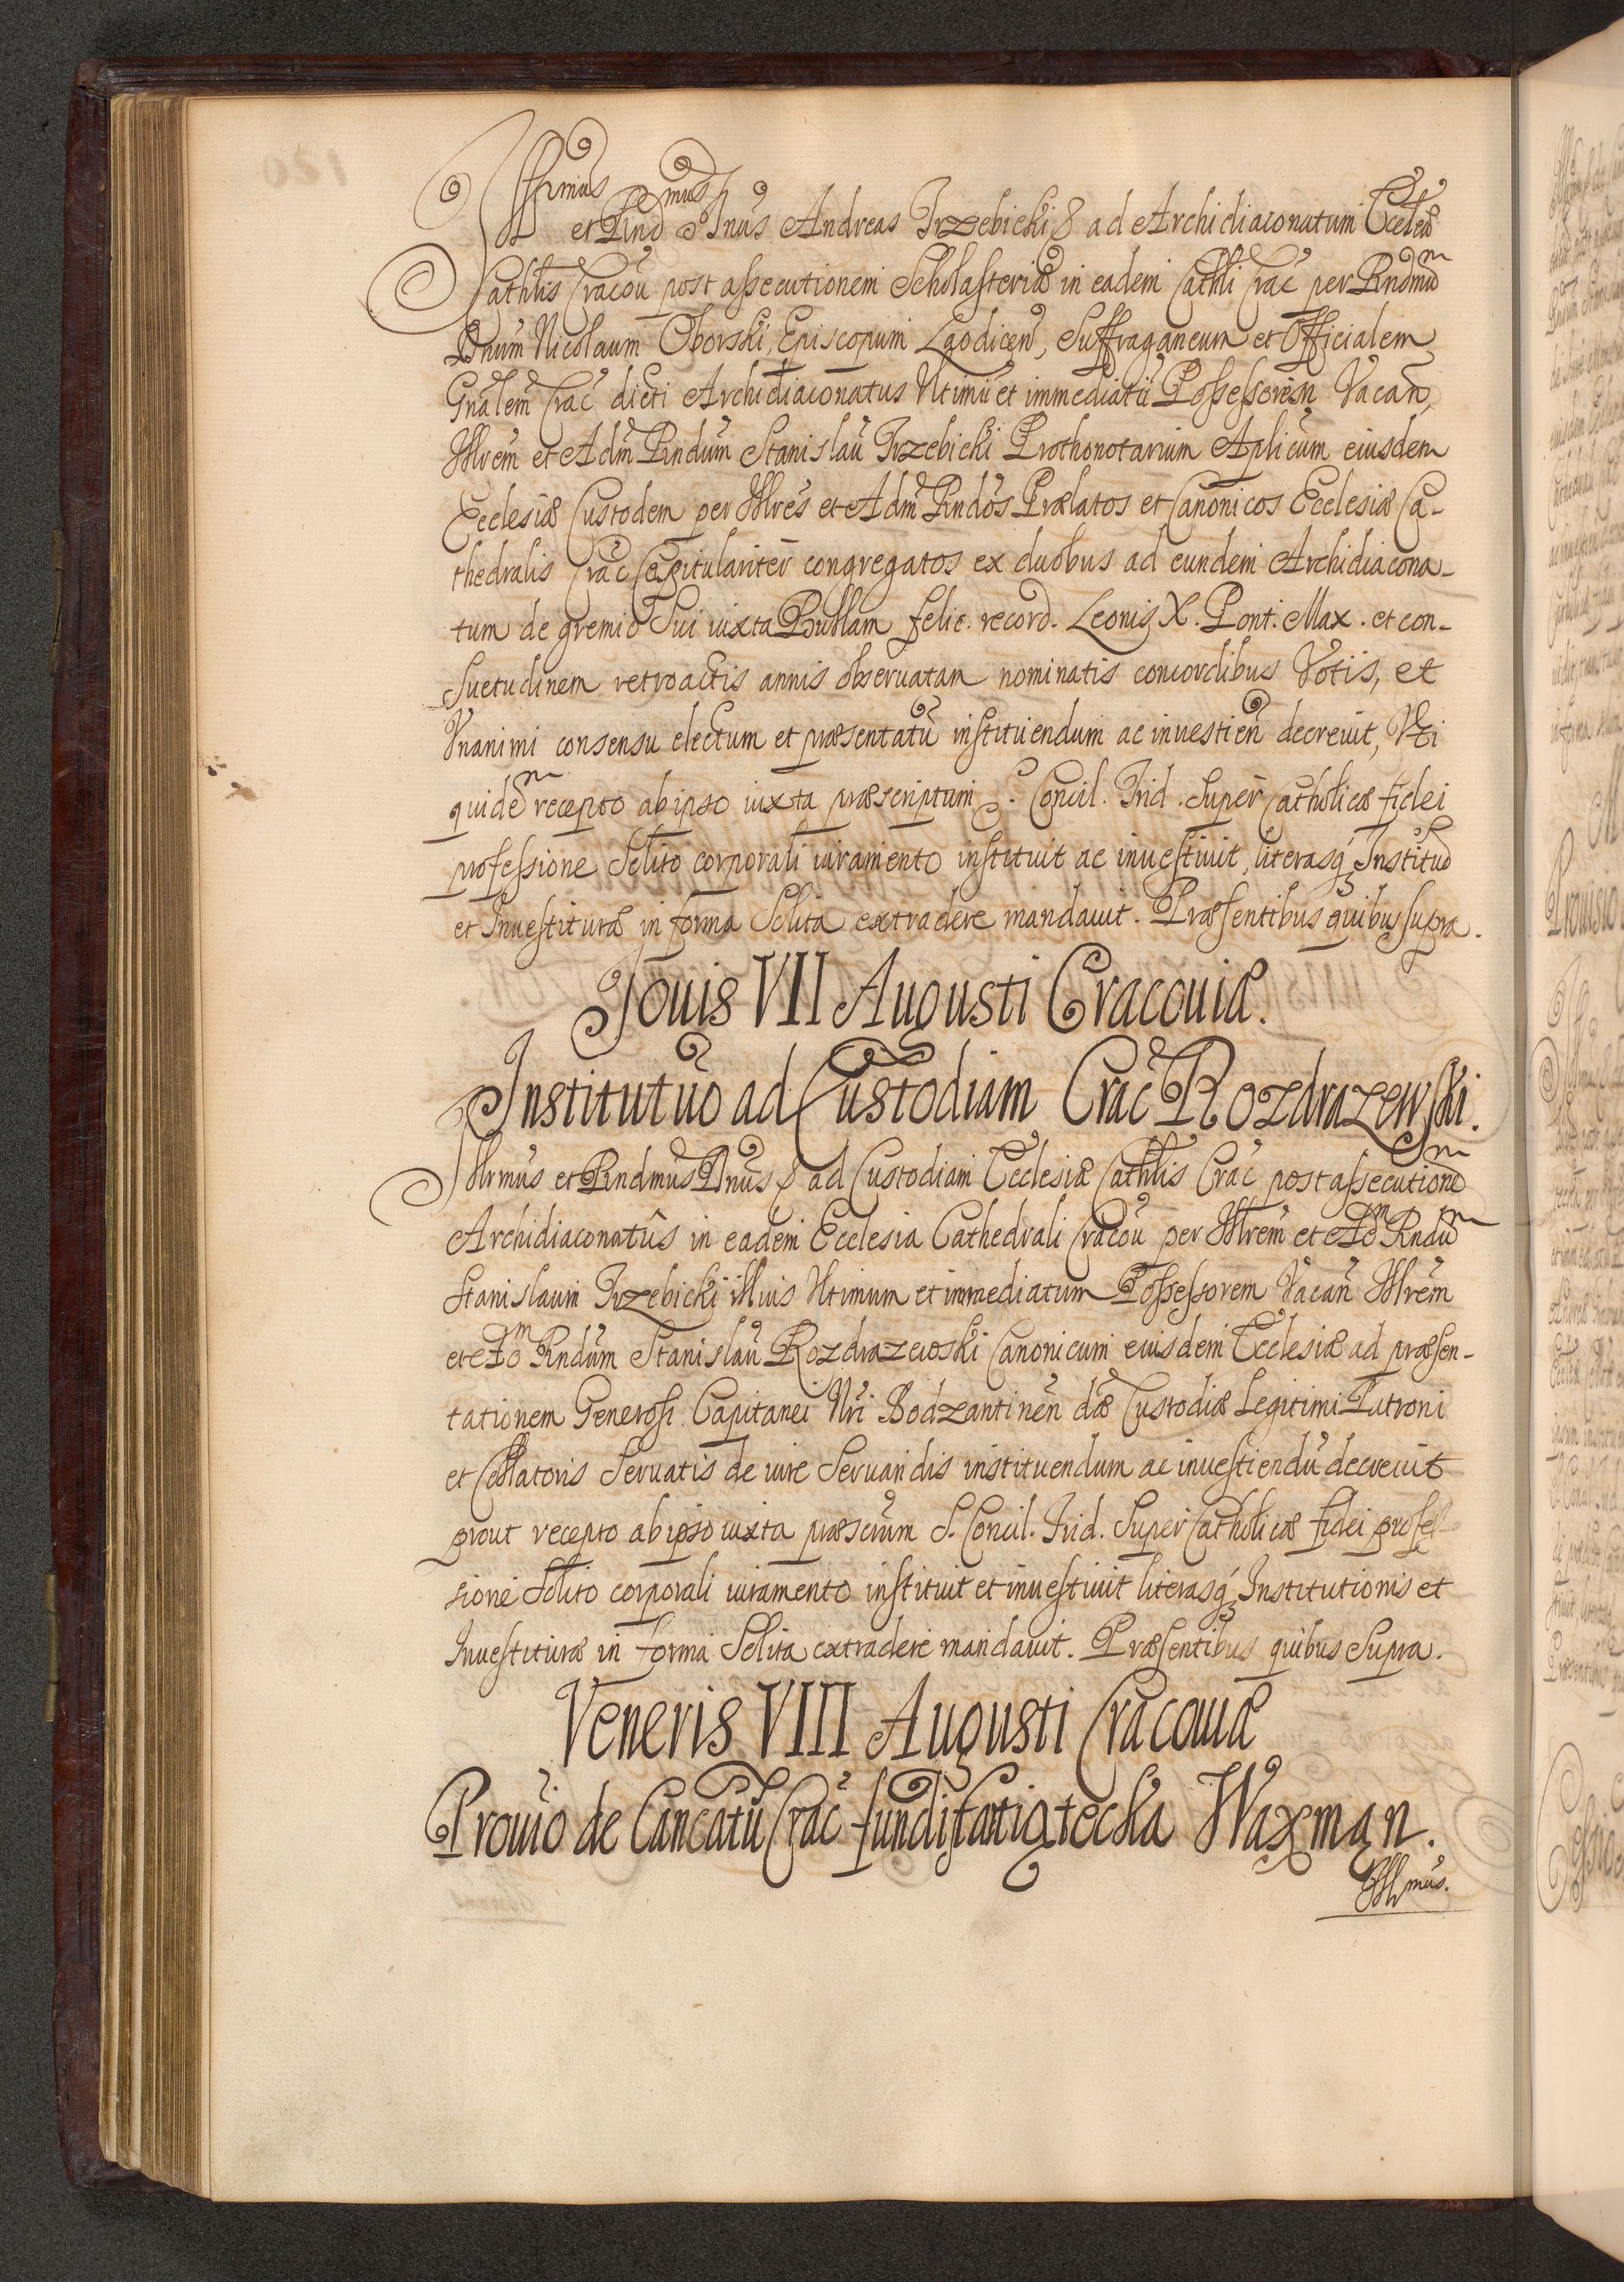 Illrmus et Rndmus Dnus Andreas Trzebicki &c ad Archidiaconatum Eccleae
Cathlis Cracou post assecutionem Scholasteriae in eadem Cathli Crac per Rndmum
Dnum Nicolaum Oborski, Episcopum Laodicen, Suffraganeum et Officialem
Gnalem Crac dicti Archidiaconatus Vltimu et immediatu Possessorem Vacan,
Illrem et Adm Rndum Stanislau Trzebicki Prothonotarium Aplicum eiusdem
Ecclesiae Custodem per Illres et Adm Rndos Praelatos et Canonicos Ecclesiae Ca-
thedralis Crac Capitulariter congregatos ex duobus ad eundem Archidiacona-
tum de gremio Sui iuxta Bullam felic. record. Leonis X. Pont. Max. et con-
suetudinem retroactis annis obseruatam nominatis concordibus Votis, et
Vnanimi consensu electum et praesentatu instituendum ac inuestien decreuit, Vti
quidem recepto ab ipso iuxta praescriptum S. Concil. Trid. Super Catholicae fidei
professione Solito corporali iuramento instituit ac inuestiuit, literasq3 Instituo
et Inuestiturae in forma Solita extradere mandauit. Praesentibus quibus supra.
Jouis VII Augusti Cracouiae.
Institutuo ad Custodiam Crac Rozdrazewski.
Illrmus et Rndmus Dnus &c ad Custodiam Ecclesiae Cathlis Crac post assecutionem
Archidiaconatus in eadem Ecclesia Cathedrali Cracou per Illrem et Adm Rndum
Stanislaum Trzebicki illius Vltimum et immediatum Possessorem Vacan Illrem
et Adm Rndum Stanislau Rozdrazewski Canonicum eiusdem Ecclesiae ad praesen-
tationem Generosi Capitanei Nri Bodzantinen dae Custodiae Legitimi Patroni
et Collatoris Seruatis de iure Seruandis instituendum ac inuestiendu decreuit
prout recepto ab ipso iuxta praescrium S. Concil. Trid. Super Catholicae fidei profes-
sione Solito corporali iuramento instituit et inuestiuit literasq3 Institutionis et
Inuestiturae in forma Solita extradere mandauit. Praesentibus quibus Supra.
Veneris VIII Augusti Cracouiae
Prouio de Cancatu Crac fundi Waxman.
Illmus.